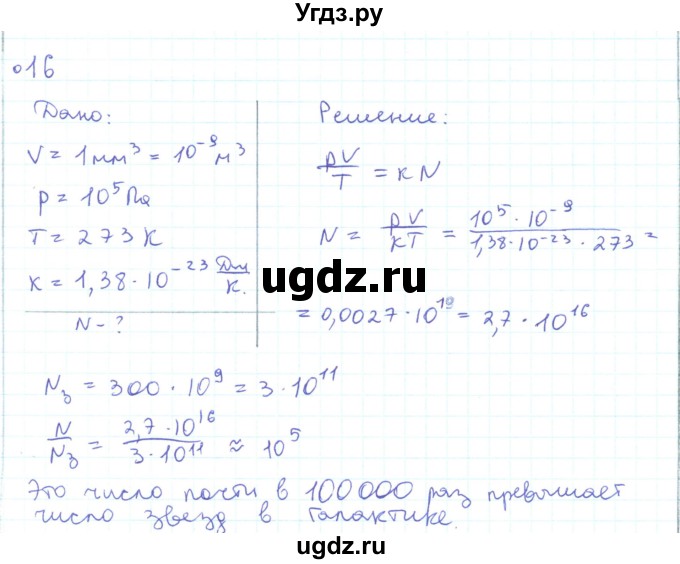 Угдз.ру
016
Дано:
V = 1 мм³ = 10⁻⁹ м³
p = 10⁵ Па
T = 273 К
k = 1,38 · 10⁻²³ Дж/К.
N - ?
Решение:
pV/T = kN
N = pV/kT = 10⁵ · 10⁻⁹ / 1,38 · 10⁻²³ · 273 =
= 0,0027 · 10¹⁹ = 2,7 · 10¹⁶
ugdz.ru
N₃ = 300 · 10⁹ = 3 · 10¹¹
N/N₃ = 2,7 · 10¹⁶ / 3 · 10¹¹ ≈ 10⁵
Это число почти в 100000 раз превышает
число звезд в Галактике.
ugdz.ru